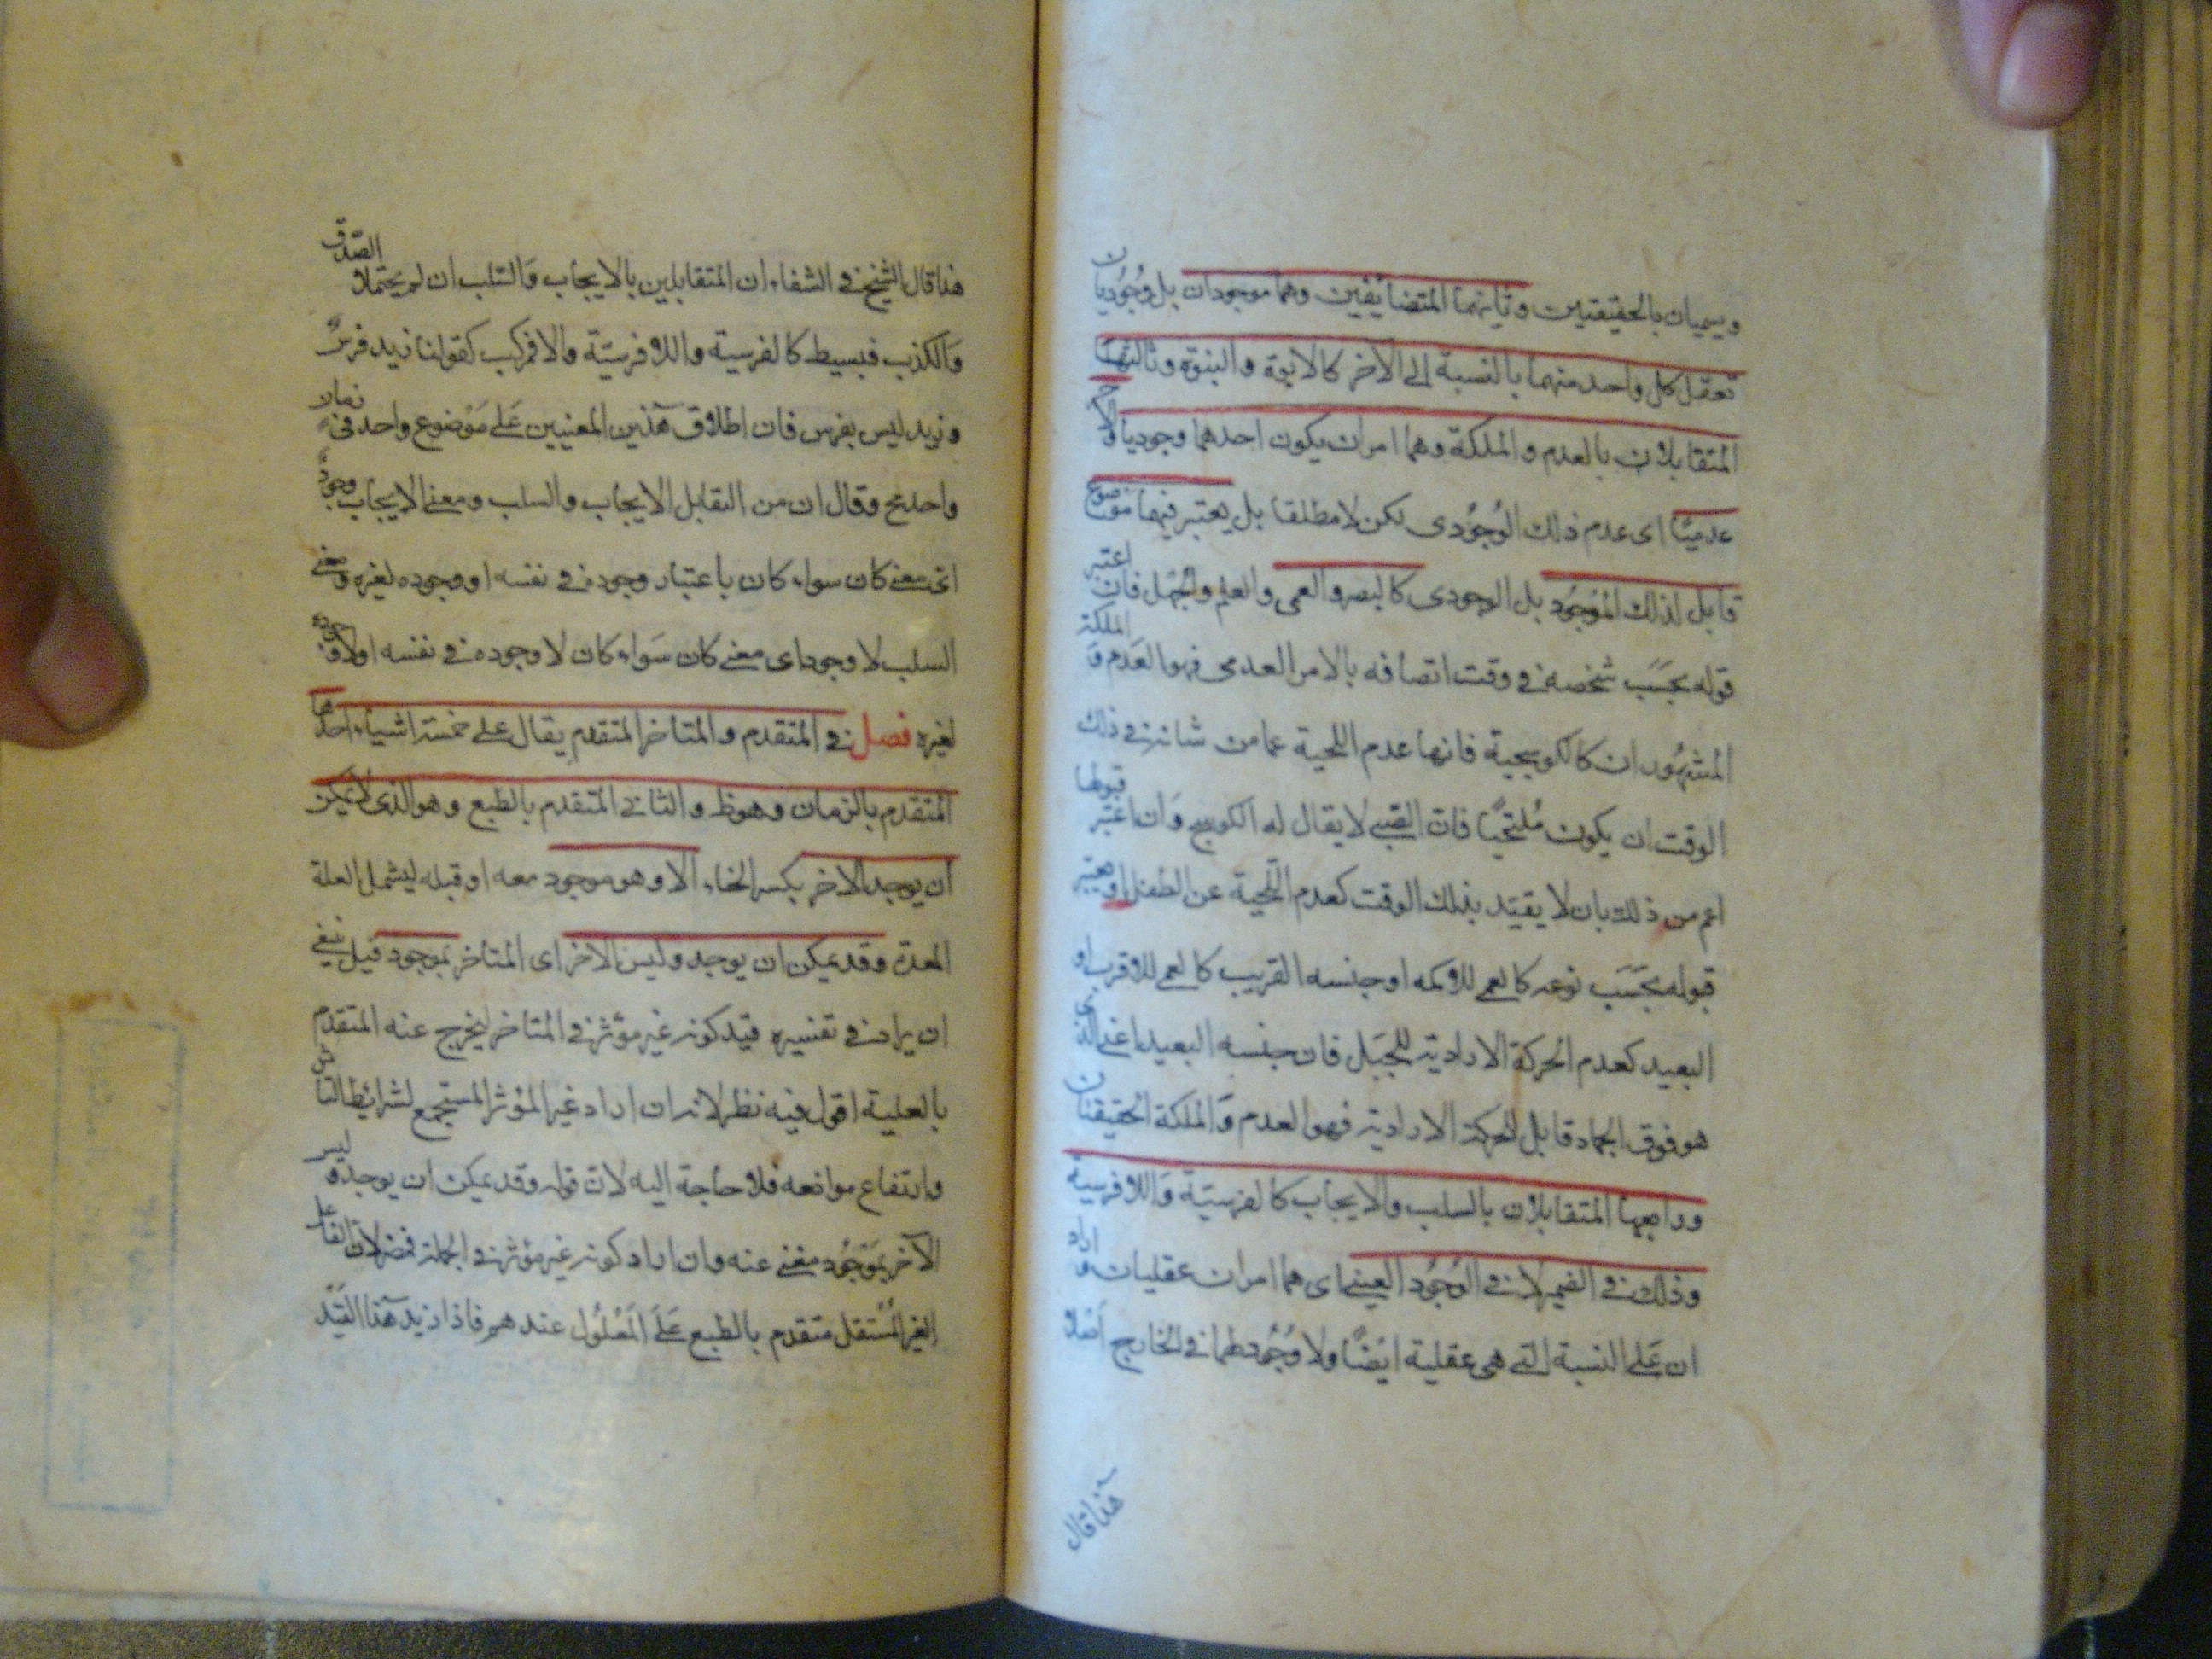 ويسميان بالحقيقيين وثانيهما المتضايفين وهما موجودان بل وجوديان
تعقل كل واحد منهما بالنسبة الى الآخر كالابوة والبنوة وثالثهما
المتقابلان بالعدم والملكة وهما امران يكون احدهما وجوديا والآخر
عدميا اى عدم ذلك الوجودى لكن لا مطلقا بل يعتبر فيهما موضوع
قابل لذلك الموجود بل الوجودى كالبصر والعمى والعلم والجهل فان اعتبر
قوله بحسب شخصه فى وقت اتصافه بالامر العدمى فهو العدم و الملكة
المشهوران كالكوسجية فانها عدم اللحية عما من شانه فى ذلك
الوقت ان يكون ملتحيا فان الصبى لا يقال له الكوسج وان اعتبر قبولها
اعم من ذلك بان لا يقيد بذلك الوقت كعدم اللحية عن الطفل او يعتبر
قبوله بحسب نوعه كالعمى للاكمه او جنسه القريب كالعمى للعقرب او
البعيد كعدم الحركة الارادية للجبل فان جنسه البعيد اعنى الذى
هو فوق الجماد قابل للحركة الارادية فهو العدم والملكة الحقيقيان
ورابعها المتقابلان بالسلب والايجاب كالفرسية واللافرسية
وذلك فى الضمير لا فى الوجود العينى اى هما امران عقليان واراد
ان على النسبة التى هى عقلية ايضا ولا وجود لهما فى الخارج اصلا
هذا قال
هذا قال الشيخ فى الشفاء ان المتقابلين بالايجاب والسلب ان لم يحتملا الصدق
والكذب فبسيط كالفرسية واللافرسية والا فمركب كقولنا زيد فرس
وزيد ليس بفرس فان اطلاق هذين المعنيين على موضوع واحد فى زمان
واحد مح وقال ان من التقابل الايجاب والسلب ومعنى الايجاب وجود
اى معنى كان سواء كان باعتبار وجوده فى نفسه او وجوده لغيره ومعنى
السلب لا وجود اى معنى كان سواء كان لا وجوده فى نفسه او لا وجوده
لغيره فصل فى المتقدم والمتاخر المتقدم يقال على خمسة اشياء احدها
المتقدم بالزمان وهو ظ والثانى المتقدم بالطبع وهو الذى لا يمكن
ان يوجد الاخر بكسر الخاء الا وهو موجود معه او قبله ليشمل العلة
المعدة وقد يمكن ان يوجد وليس الاخر اى المتاخر بموجود قيل ينبغى
ان يراد فى تفسيره قيد كونه غير مؤثر فى المتاخر ليخرج عنه المتقدم
بالعلية اقول فيه نظر لانه ان اراد غير المؤثر المستجمع لشرائط التاثير
وارتفاع موانعه فلا حاجة اليه لان قوله وقد يمكن ان يوجد وليس
الآخر بموجود مغنى عنه وان اراد كونه غير مؤثر فى الجملة فمضر لان الفاعل
الغير المستقل متقدم بالطبع على المعلول عندهم فاذا زيد هذا القيد